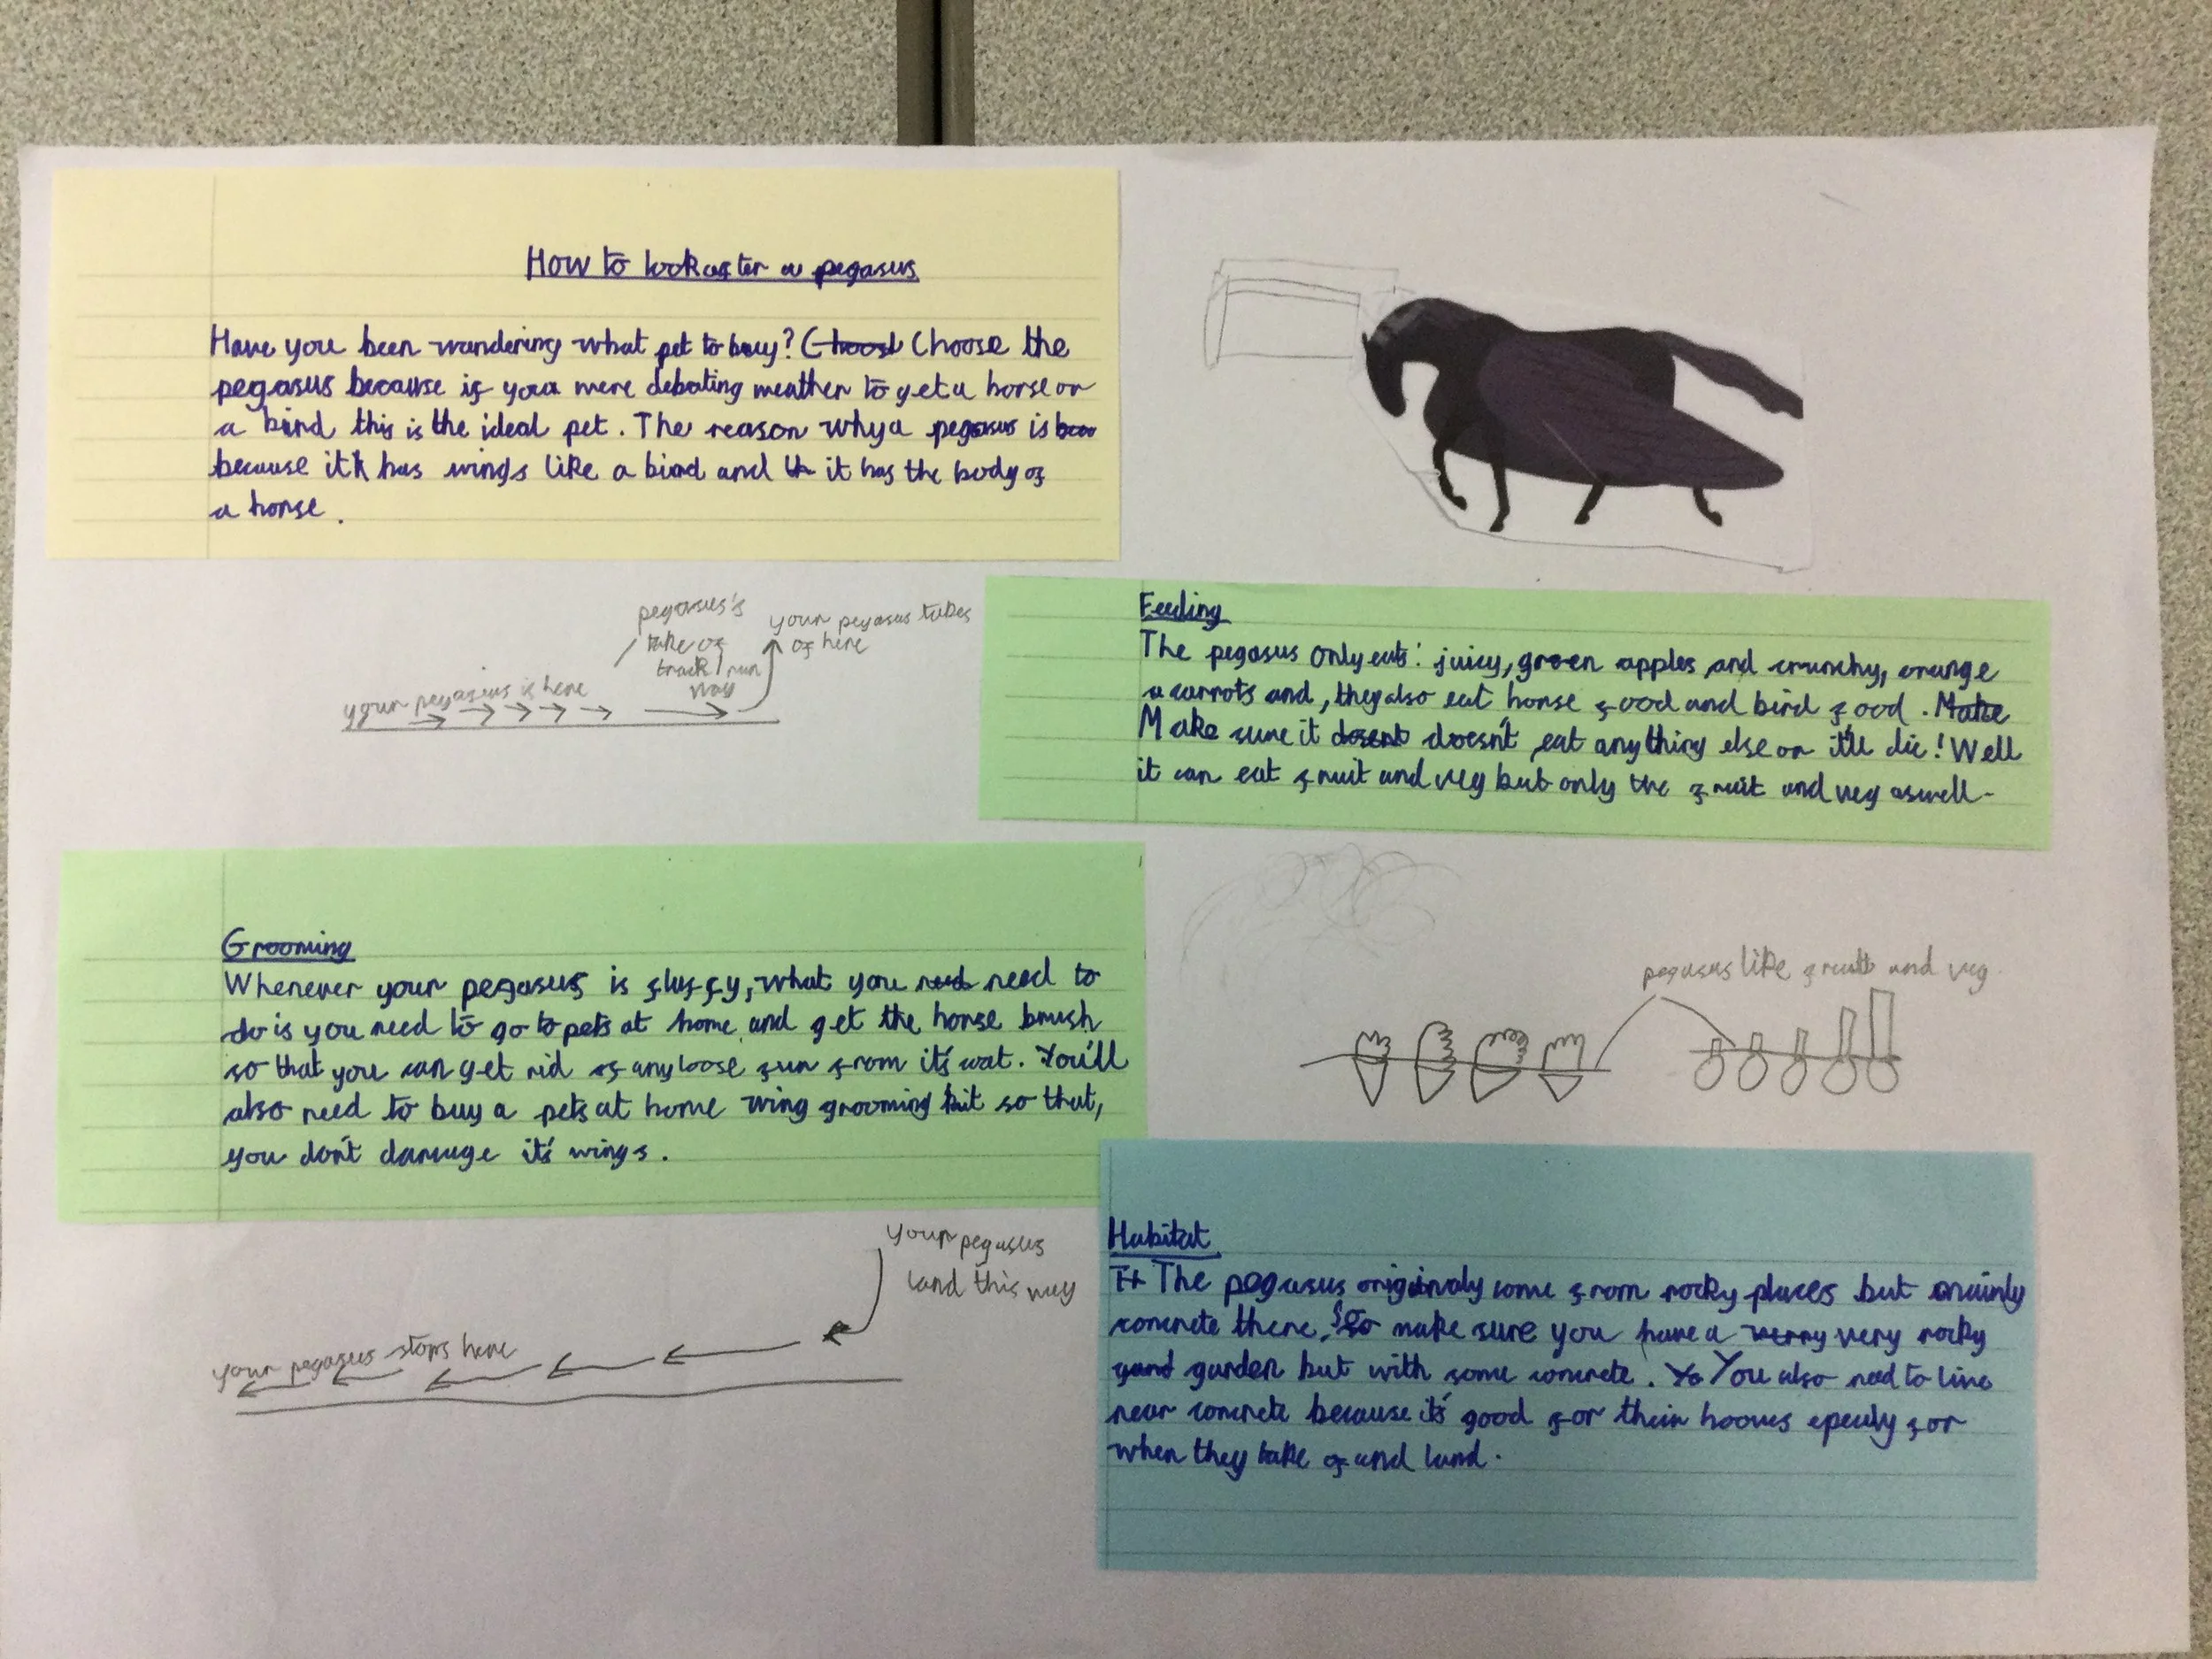 How to look after a pegasus
Have you been wandering what pet to buy? Choose the
pegasus because if your were debating weather to get a horse or
a bird this is the ideal pet. The reason why a pegasus is
because it has wings like a bird and it has the body of
a horse.
pegasus's
take of
track/run
way
your pegasus takes
of here
your pegasus is here
Feeding
The pegasus only eats: juicy, green apples and crunchy, orange
carrots and, they also eat horse food and bird food.
Make sure it doesn't eat anything else or it'll die! Well
it can eat fruit and veg but only the fruit and veg aswell.
Grooming
Whenever your pegasus is fluffy, what you need to
do is you need to go to pets at home and get the horse brush
so that you can get rid of any loose fur from it's coat. You'll
also need to buy a pets at home wing grooming kit so that,
you don't damage it's wings.
pegasus like fruit and veg
your pegasus
land this way
your pegasus stops here
Habitat
The pegasus originaly come from rocky places but mainly
concrete there. So make sure you have a very rocky
garden but with some concrete. You also need to live
near concrete because it's good for their hooves epecily for
when they take of and land.